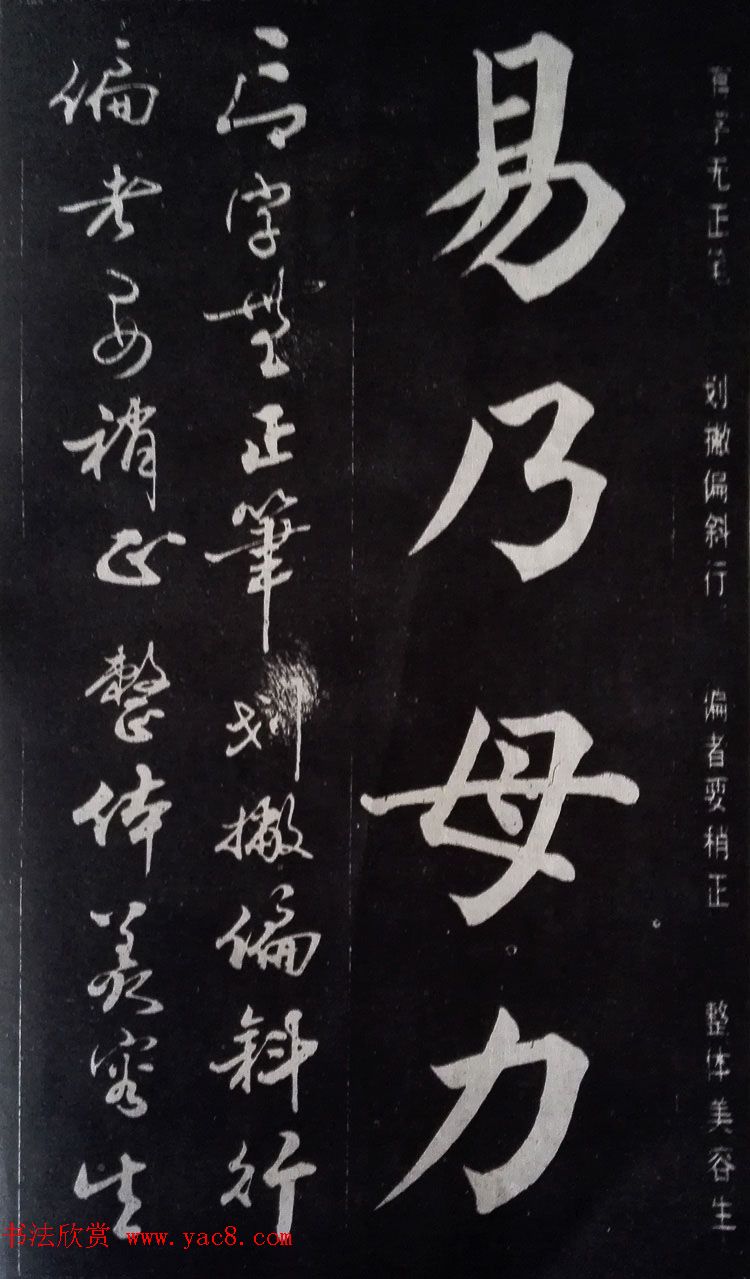 字无正笔 划撇偏斜行 偏者要稍正 整体美容生
易乃母力
字無正筆划撇偏斜行
偏者要稍正整体美容生
书法欣赏 www.yac8.com